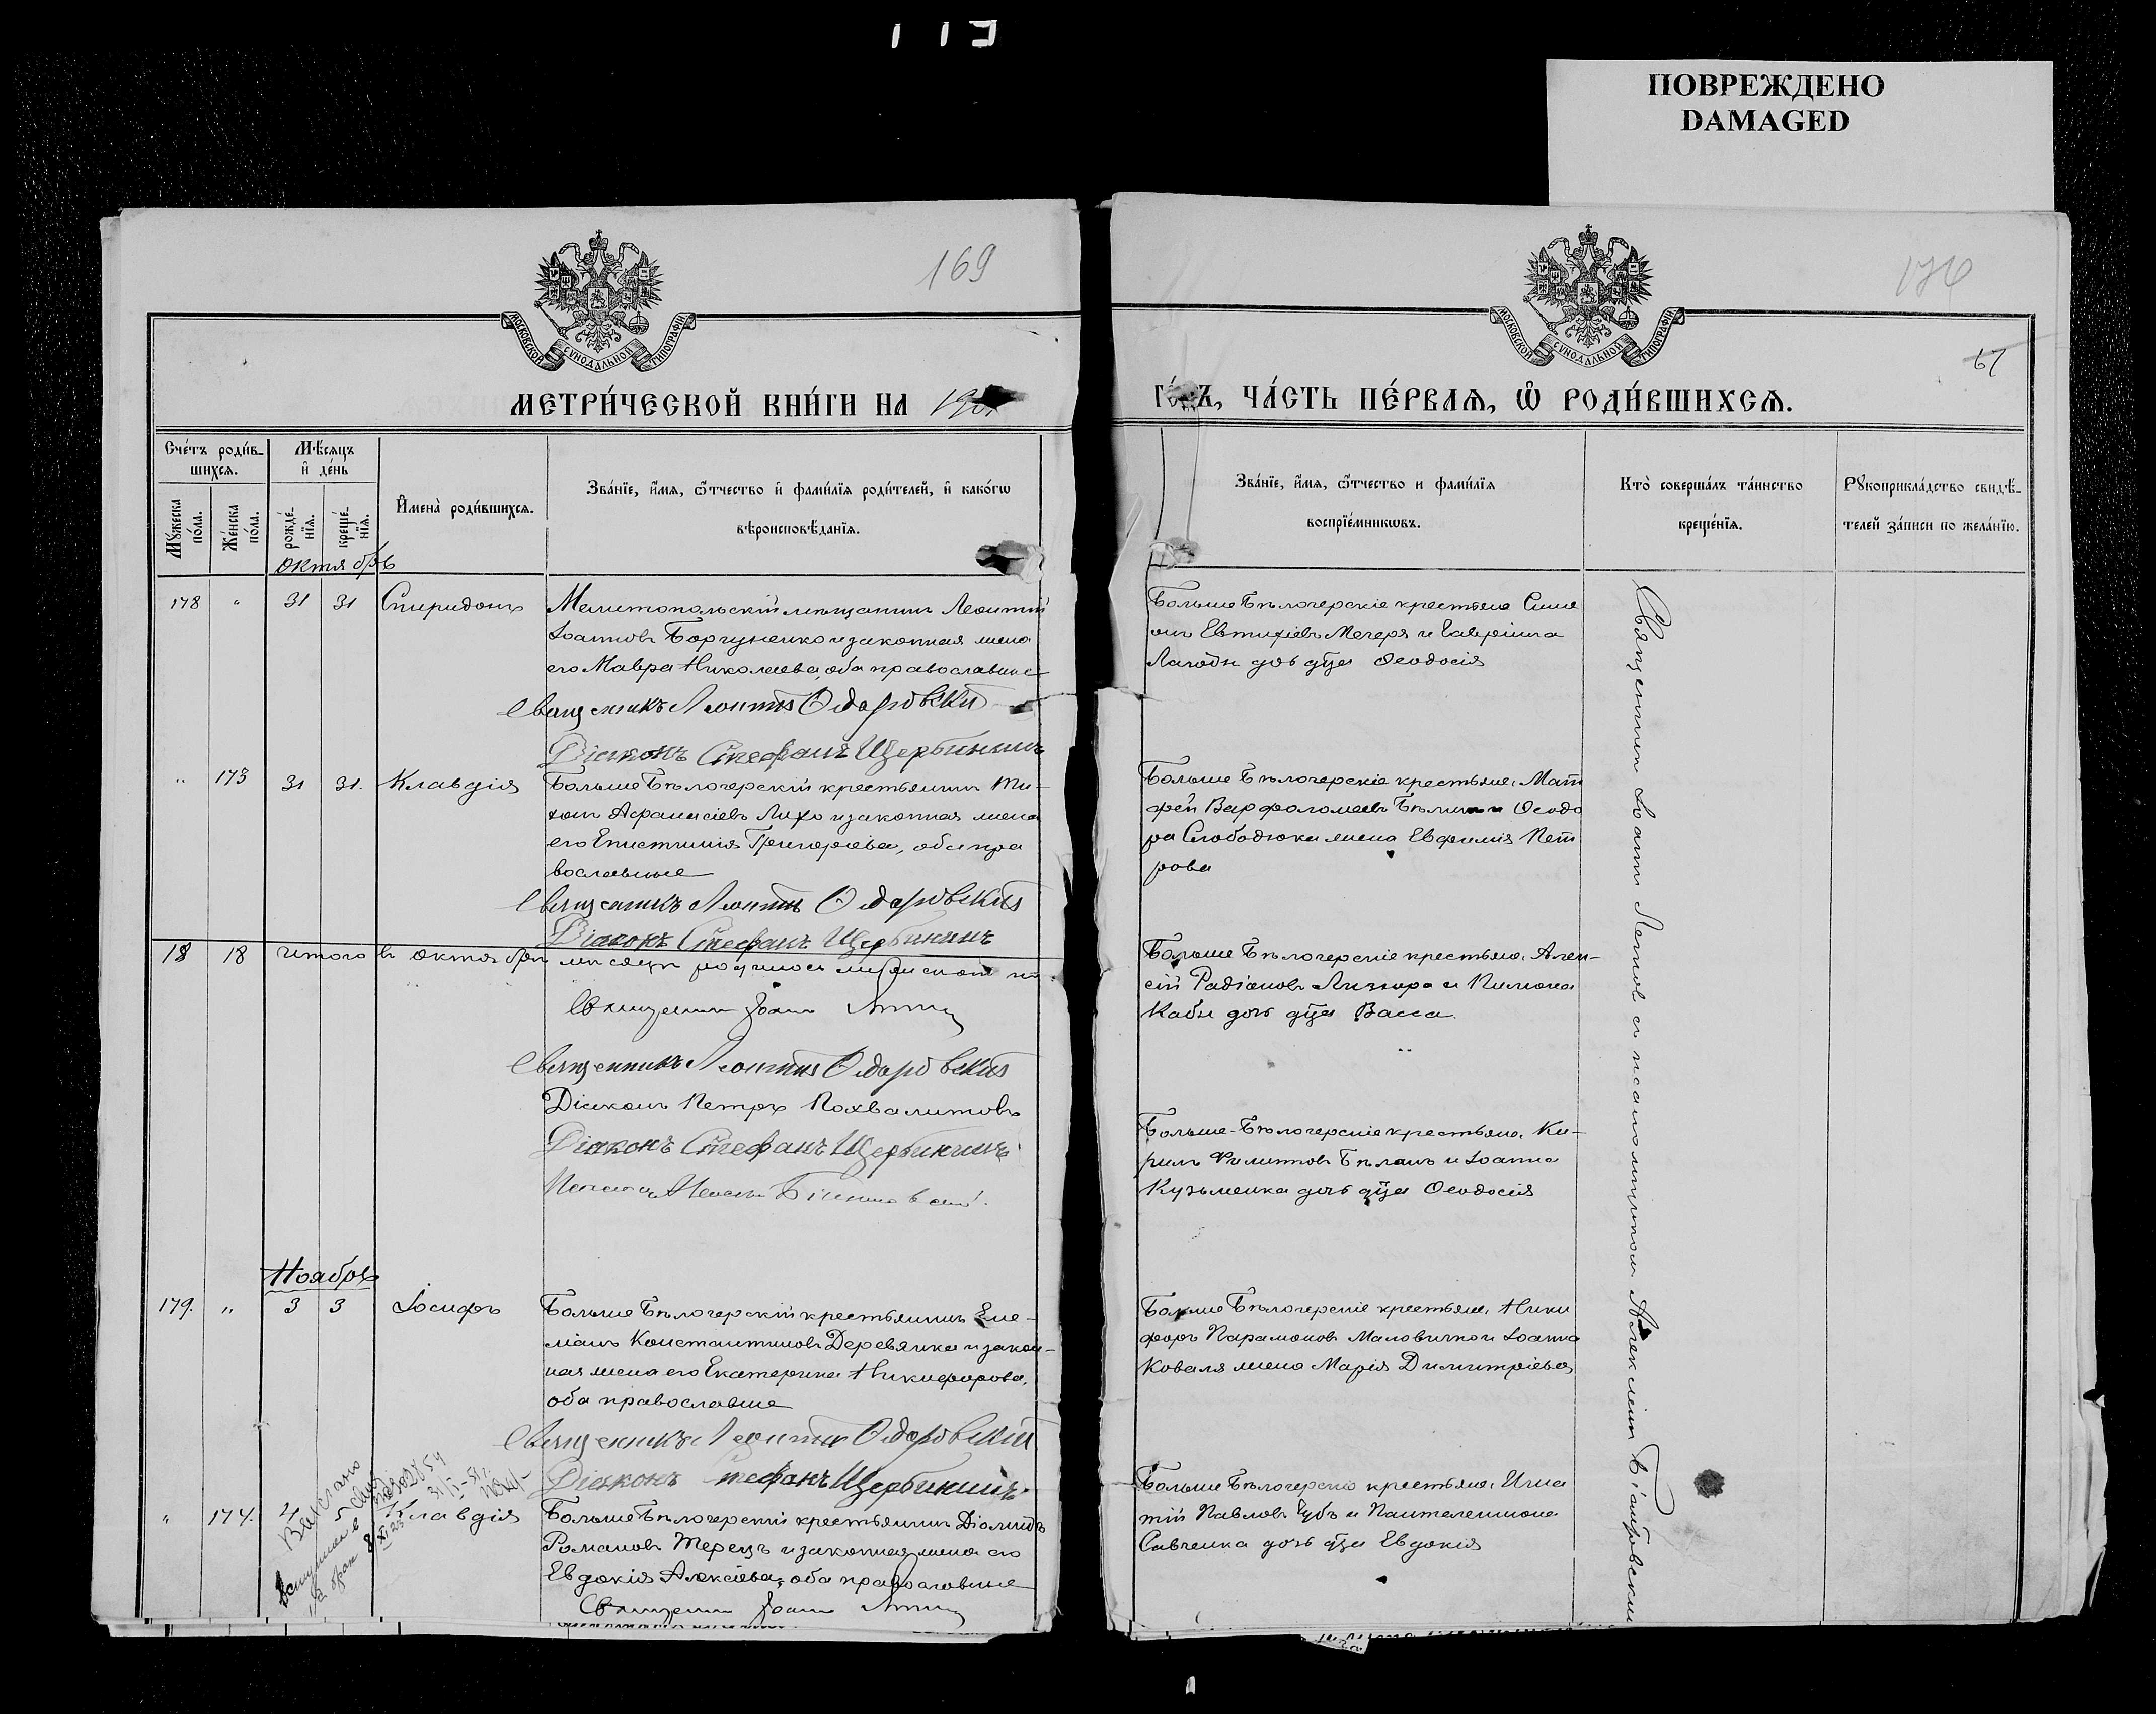 113
ПОВРЕЖДЕНО
DAMAGED
169
МОСКОВСКОЙ СѴНОДАЛЬНОЙ ТИПОГРАФІИ
МЕТРИ́ЧЕСКОЙ КНИ́ГИ НА
Сче́тъ роди́в-
шихсѧ.
Мѣ́сѧцъ
и҆ де́нь
Мꙋ́жеска
по́ла.
Же́нска
по́ла.
рожде́-
нїѧ.
креще́-
нїѧ.
И҆мена̀ роди́вшихсѧ.
Зва́нїе, и҆́мѧ, ѻ҆́тчество и҆ фамилїѧ роди́телей, и҆ како́гѡ
вѣроисповѣ́данїѧ.
Октябрь
178 " 31 31 Спиридонъ
Мелитопольскій мѣщанинъ Леонтій
Іоанновъ и законная жена
его Мавра Николаева, оба православные
Священникъ Леонтій Одаровскій
Діаконъ Стефанъ Щербининъ
" 173 31 31. Клавдія
Больше Бѣлозерскій крестьянинъ Ти-
хонъ Афанасіевъ Лихо и законная жена
его Епистимія Григоріева, оба пра
вославные
Священникъ Леонтій Одаровскій
Діаконъ Стефанъ Щербининъ
18 18 Итого въ октябрѣ мѣсяцѣ родилось
Священникъ Іоаннъ
Священникъ Леонтій Одаровскій
Діаконъ Петръ Похвалитовъ
Діаконъ Стефанъ Щербининъ
Ноябрь
179. " 3 3 Іосифъ
Больше Бѣлозерскій крестьянинъ Еме-
ліанъ Константиновъ Деревянка и закон-
ная жена его Екатерина Никифорова,
оба православные
Священникъ Леонтій Одаровскій
Діаконъ Стефанъ Щербининъ
" 174. 4 5 Клавдія
Больше Бѣлозерскій крестьянинъ Діомидъ
Романовъ Терецъ и законная жена его
Евдокія Алексіева, оба православные
Священникъ Іоаннъ
61
МОСКОВСКОЙ СѴНОДАЛЬНОЙ ТИПОГРАФІИ
ГО́ДЪ, ЧА́СТЬ ПЕ́РВАѦ, Ѡ҆ РОДИ́ВШИХСѦ.
Зва́нїе, и҆́мѧ, ѻ҆́тчество и фами́лїѧ
воспрїе́мникѡвъ.
Кто̀ соверша́лъ та́инство
креще́нїѧ.
Рꙋкоприкла́дство свидѣ́-
телей за́писи по жела́нїю.
Больше Бѣлозерскіе крестьяне Симе
онъ Евтихіевъ Мечеря и Гавріила
Лагоды дочь д҃ца Ѳеодосія
Больше Бѣлозерскіе крестьяне, Мат
фей Варфоломеевъ и Ѳеодо
ра Слободюка жена Евфимія Пет
рова
Больше Бѣлозерскіе крестьяне, Алек-
сій Радіоновъ и Пимона
Кабы дочь д҃ца Васса.
Больше-Бѣлозерскіе крестьяне, Ки-
рилъ Филиповъ Бѣланъ и Іоанна
Кузьменка дочь д҃ца Ѳеодосія
Больше Бѣлозерскіе крестьяне, Ники
форъ Парамоновъ Маловичко и Іоанна
Коваля жена Марія Димитріева
Больше Бѣлозерскіе крестьяне, Игна
тій Павловъ Губъ и Пантелеимона
Савченка дочь д҃ца Евдокія
Священникъ Іоаннъ съ псаломщикомъ